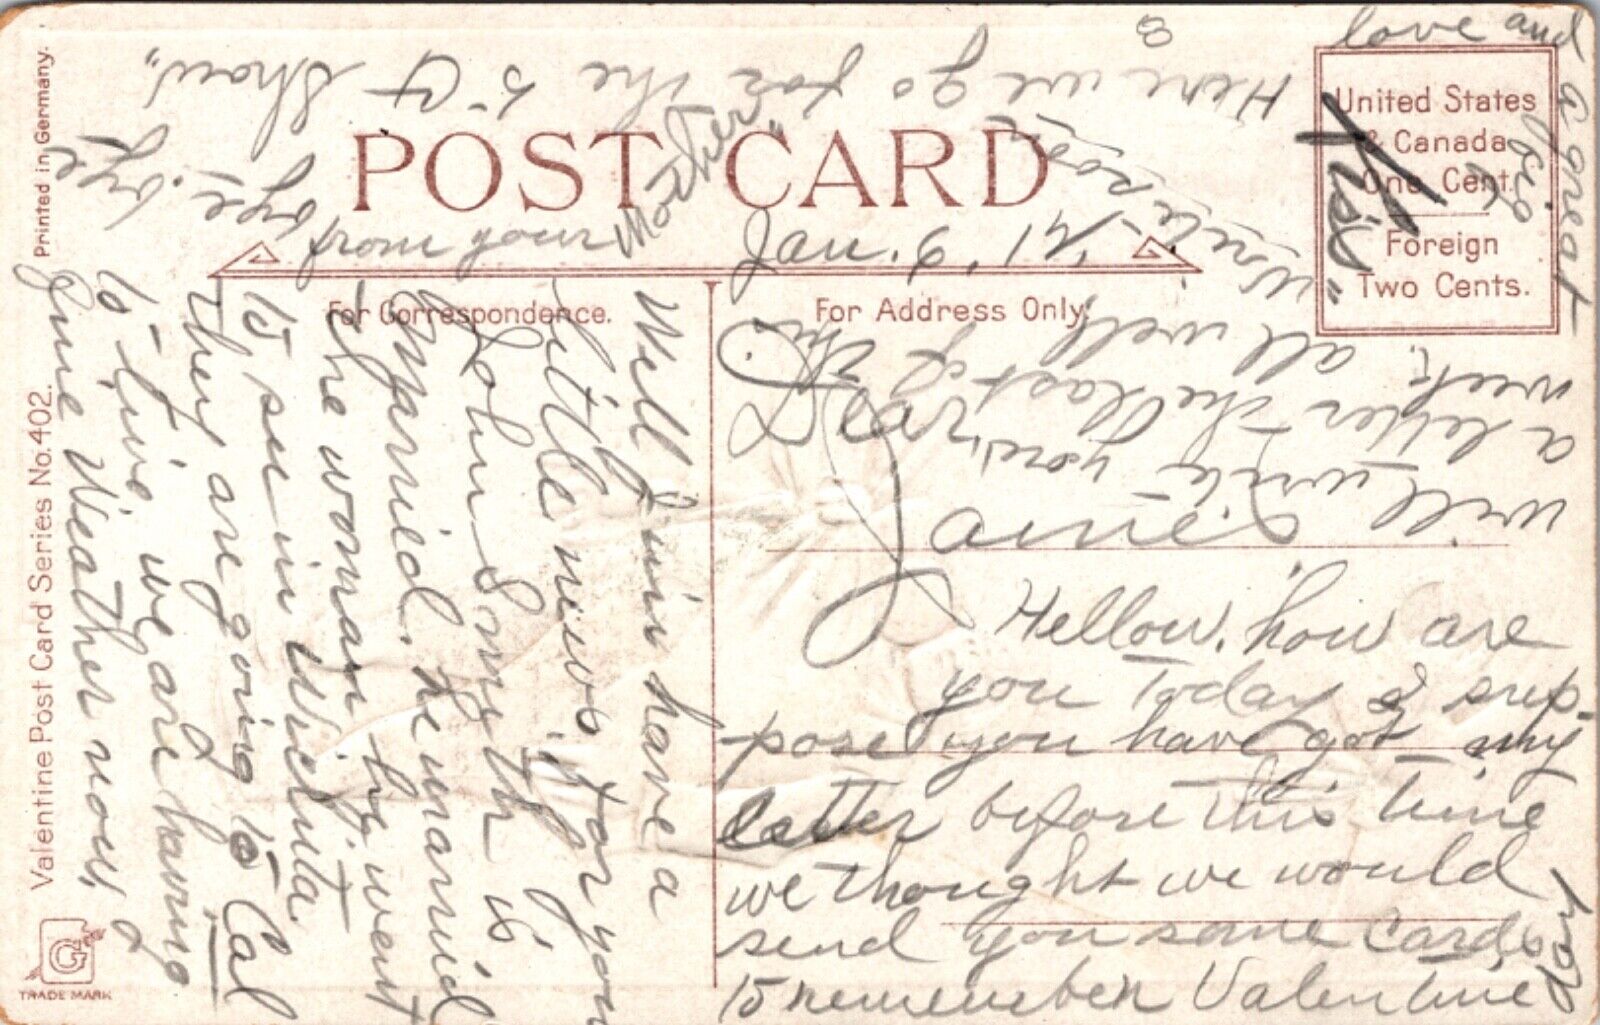 POST CARD
Printed in Germany.
Valentine Post Card Series No. 402.
G
TRADE MARK
United States
& Canada
One Cent.
Foreign
Two Cents.
For Correspondence.
For Address Only.
Jan. 9. '14
Dear
Janie.
Hellow. how are
you Today I sup-
pose you have got my
letter before this time
we thought we would
send you some cards
to remember Valentine
day
Well Jim have a
little news for you
John Smyth is
married. he married
the woman he went
to see in Wichita
they are going to Cal
to live we are having
fine Weather now,
bye. bye
from your
Mother
Here we go for the 5 ct Show"
Write soon
all well
will write you
a letter the last of
week.
love and
a great
big
Kiss"